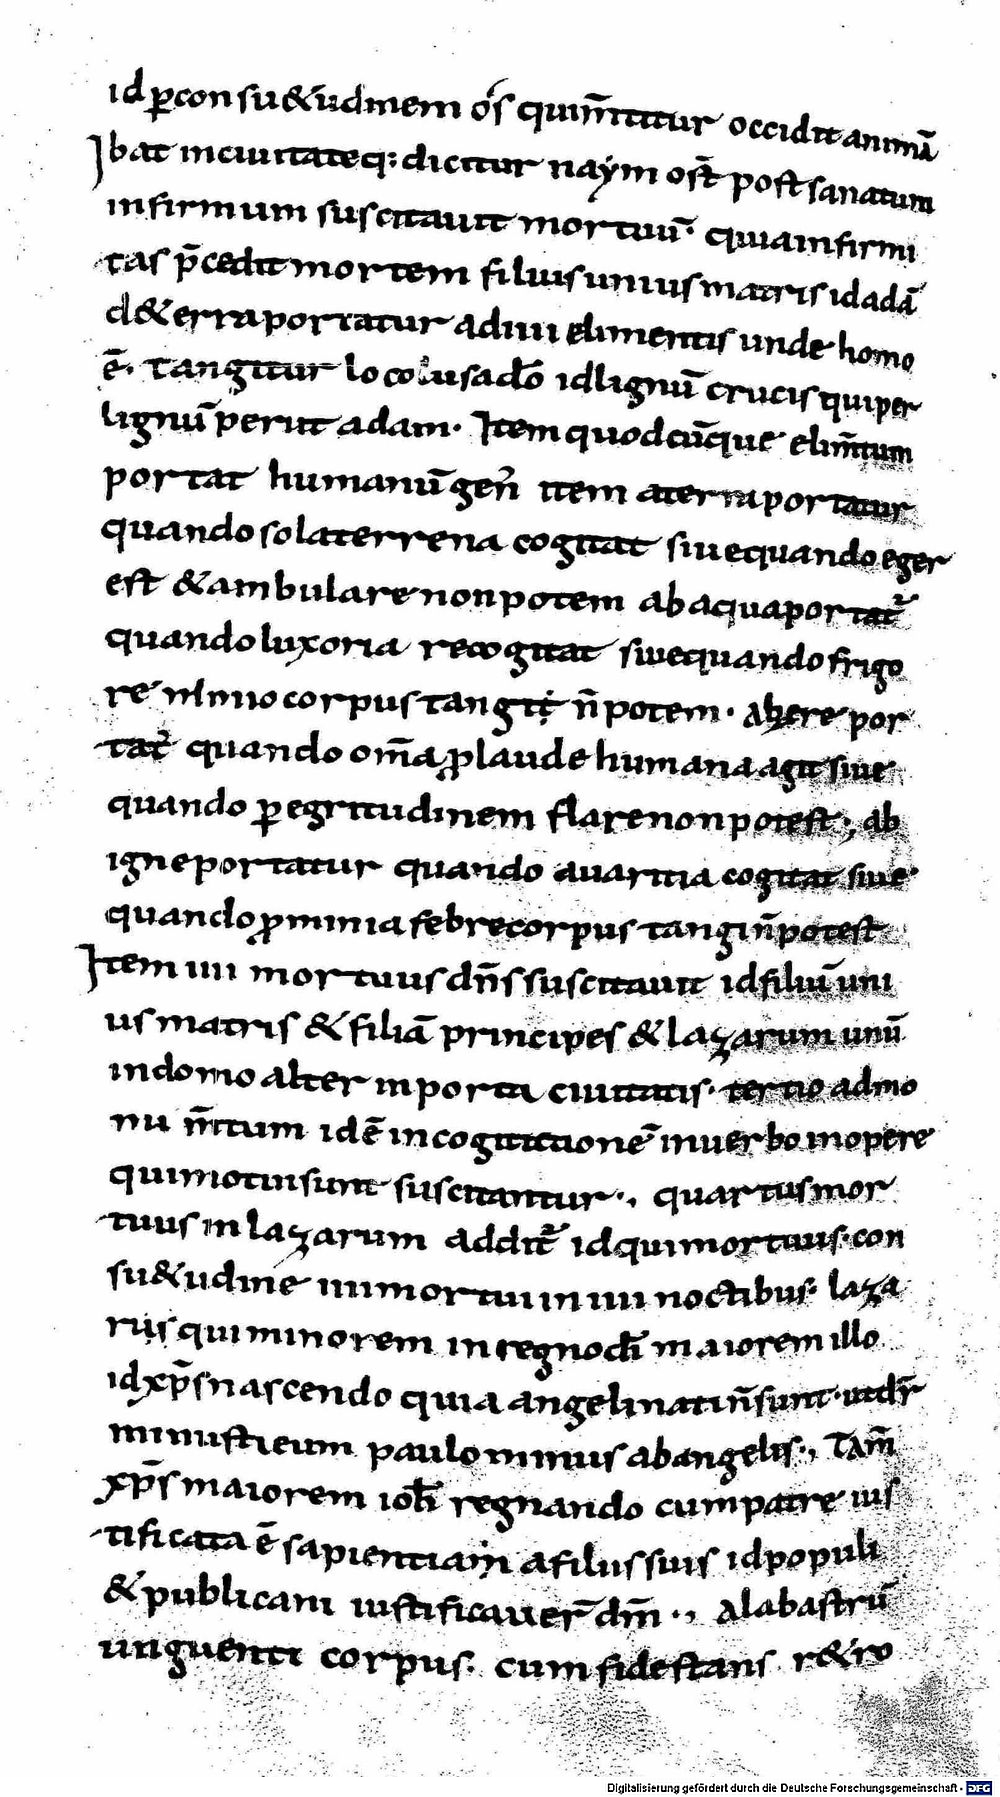 id ꝑ consu&udinem ōs qui m̄titur occidit animā
Ibat in ciuitate q: dicitur naym os̄t post sanatum
infirmum suscitauit mortuū· quia infirmi
tas p̄cedit mortem filius unius matris id adā
d&erra portatur ad iiii elimentis unde homo
ē· tangitur loculus ad do id lignū crucis qui per
lignū periit adam· Item quodcūque elim̄tum
portat humanū gen̄ item a terra portatur
quando sola terrena cogitat siue quando eger
est & ambulare non potem ab aqua portat̄
quando luxoria recogitat siue quando frigo
re nimio corpus tangit n̄ potem· abere por
tat̄ quando om̄a ꝓ laude humana agit siue
quando ꝑ egritudinem flare non potest·, ab
igne portatur quando auaritia cogitat siue
quando ꝓ nimia febre corpus tangi n̄ potest
Item iiii mortuus dn̄s suscitauit id filiū uni
us matris & filiā principes & lazarum unū
in domo alter in porta ciuitatis· tertio ad mo
nu m̄tum idē in cogitatione in uerbo in opere
qui motui sunt suscitantur·, quartus mor
tuus in lazarum addit̄ id qui mortuus· con
su&udine iiii mortui in iiii noctibus· laza
rus qui minorem in regno dī maiorem illo
id xp̄s nascendo quia angeli nati n̄ sunt· ut dr̄
minuisti eum paulo minus ab angelis·, Tam̄
xp̄s maiorem ioh̄ regnando cum patre ius
tificata ē sapientiam a filiis suis id populi
& publicani iustificauer̄ dm̄·, alabastrū
unguenti corpus· cum fide stans r&ro